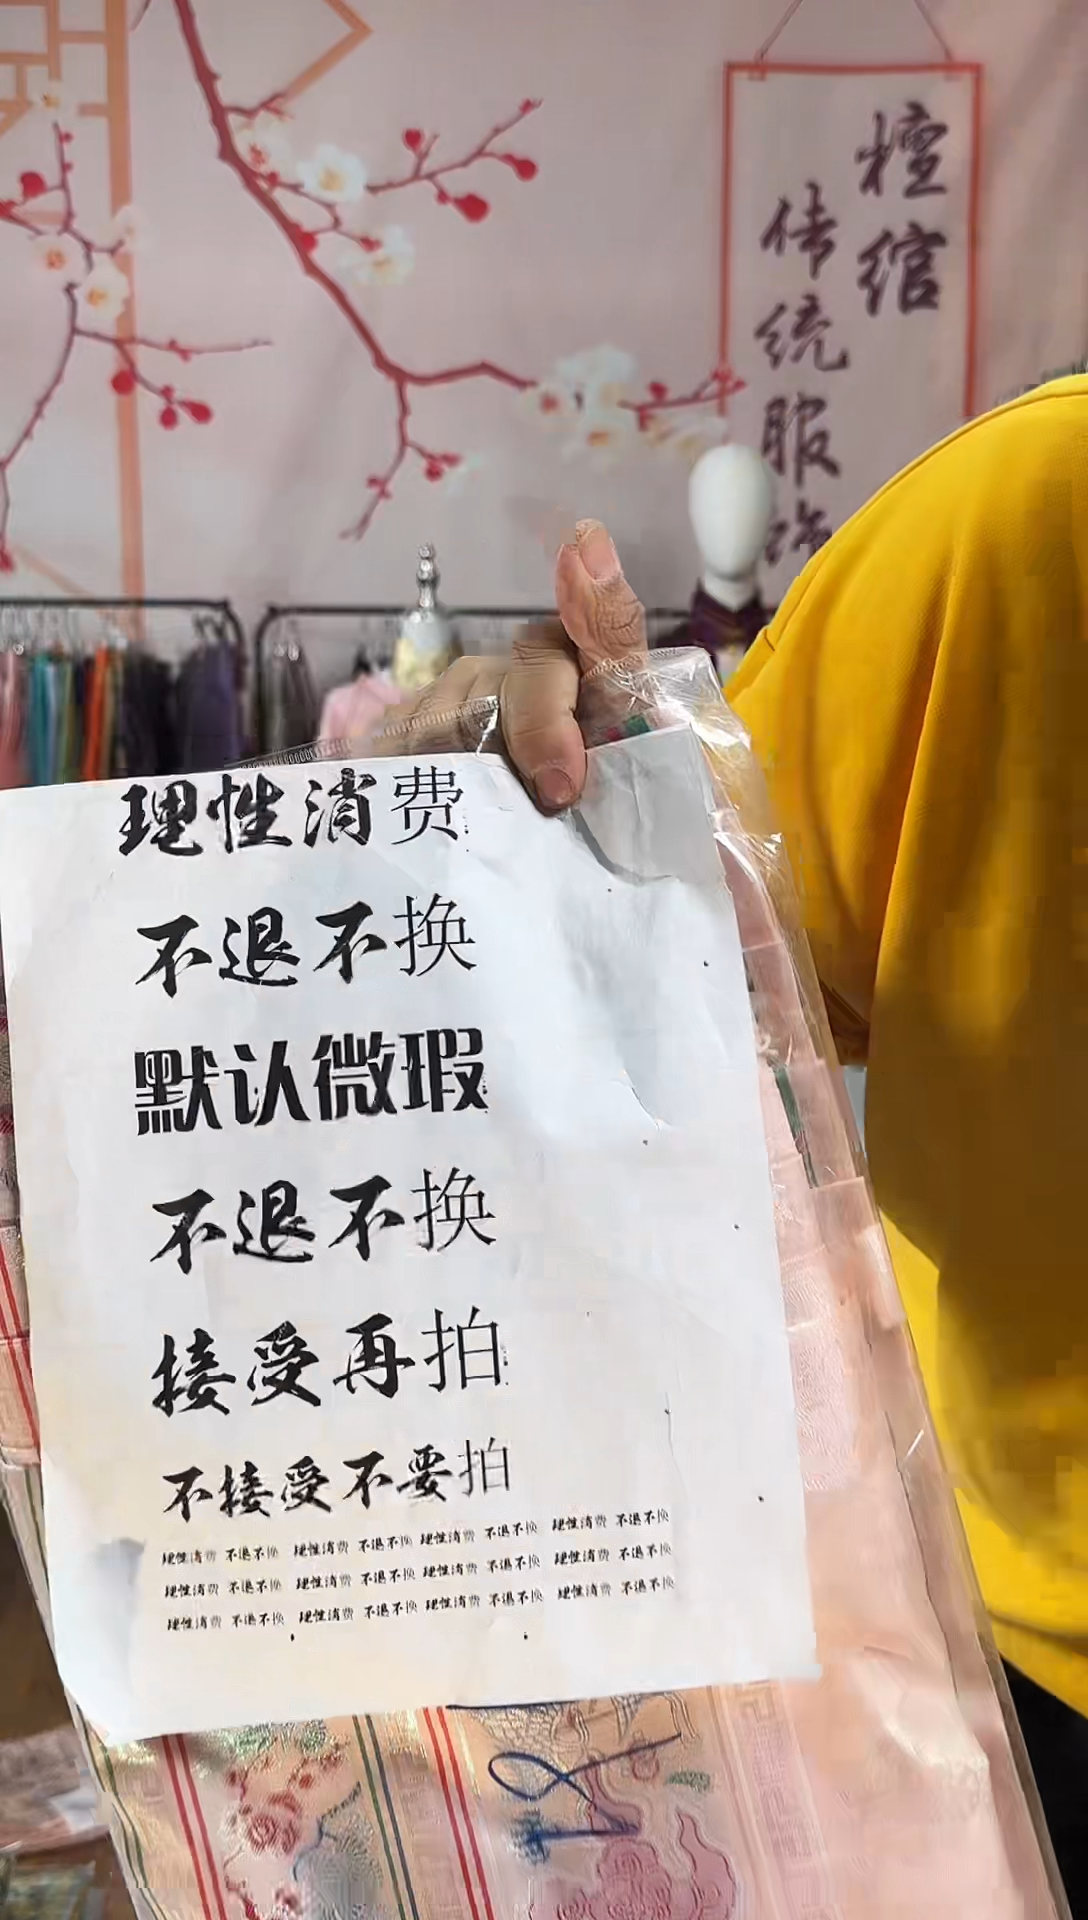 檀绾
传统服饰
理性消费
不退不换
默认微瑕
不退不换
接受再拍
不接受不要拍
理性消费 不退不换 理性消费 不退不换 理性消费 不退不换 理性消费 不退不换
理性消费 不退不换 理性消费 不退不换 理性消费 不退不换 理性消费 不退不换
理性消费 不退不换 理性消费 不退不换 理性消费 不退不换 理性消费 不退不换